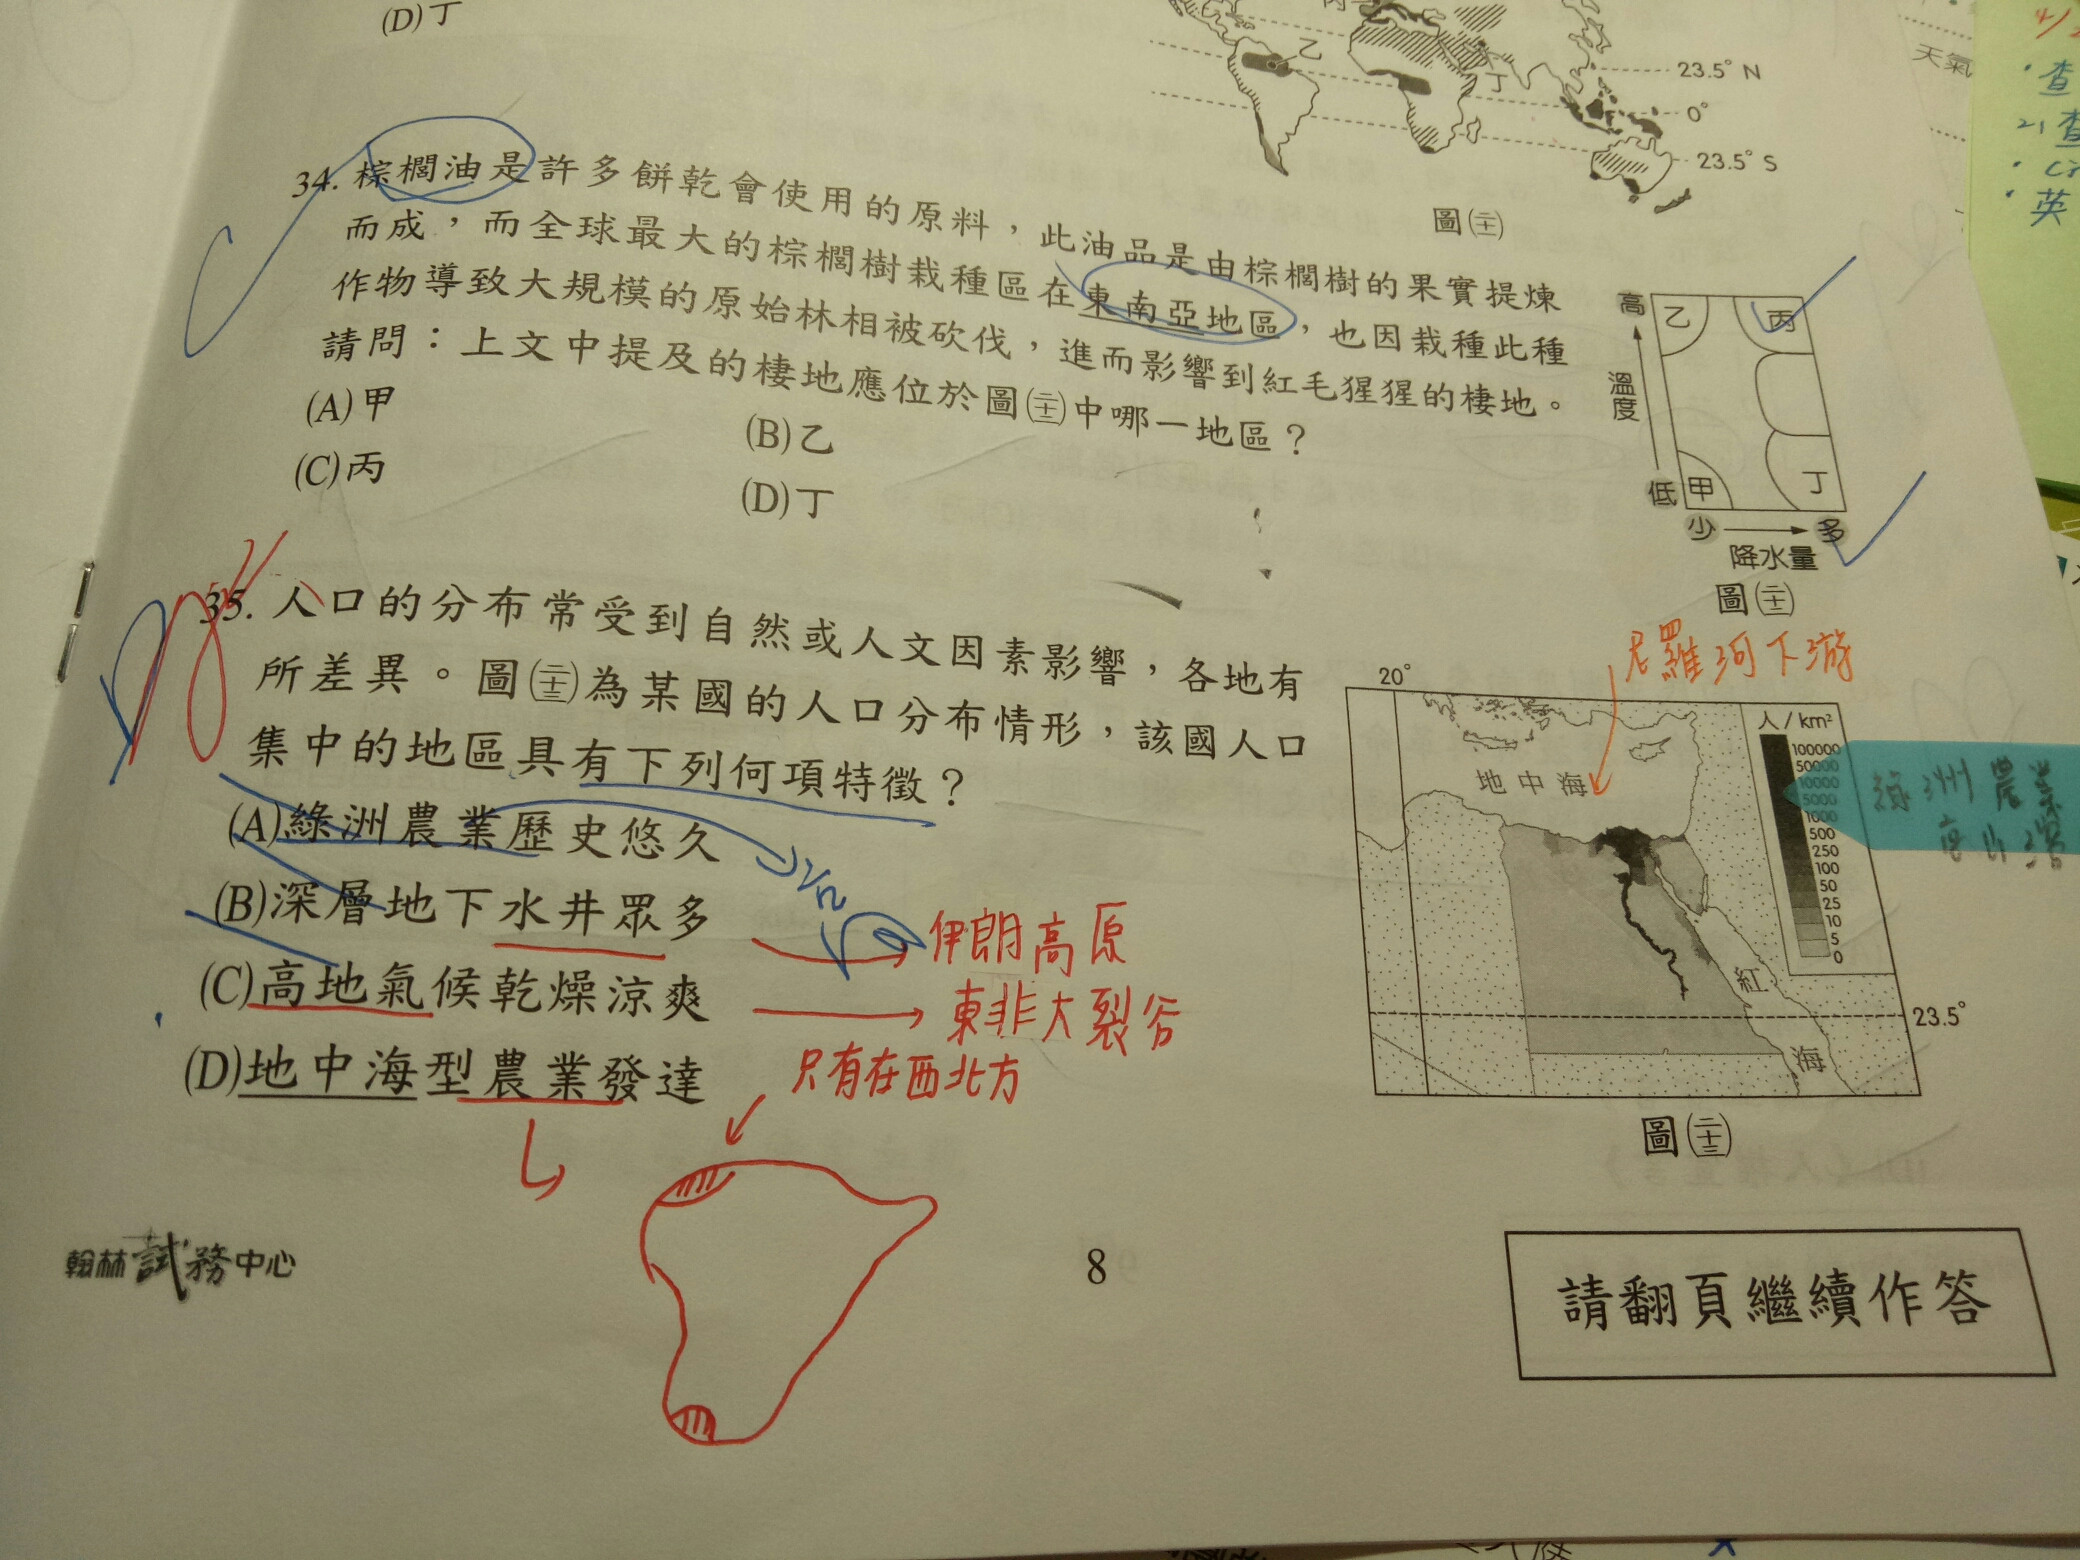 (D)丁
丙
乙
丁
23.5° N
0°
23.5° S
圖(二十)
天氣
查
查
英
34. 棕櫚油是許多餅乾會使用的原料，此油品是由棕櫚樹的果實提煉
而成，而全球最大的棕櫚樹栽種區在東南亞地區，也因栽種此種
作物導致大規模的原始林相被砍伐，進而影響到紅毛猩猩的棲地。
請問：上文中提及的棲地應位於圖(二十二)中哪一地區？
(A)甲
(B)乙
(C)丙
(D)丁
高
溫度
低
乙
丙
甲
丁
少
多
降水量
圖(二十二)
35. 人口的分布常受到自然或人文因素影響，各地有
所差異。圖(二十三)為某國的人口分布情形，該國人口
集中的地區具有下列何項特徵？
(A)綠洲農業歷史悠久
(B)深層地下水井眾多
(C)高地氣候乾燥涼爽
(D)地中海型農業發達
伊朗高原
東非大裂谷
只有在西北方
尼羅河下游
20°
地中海
紅
海
23.5°
人/km²
100000
50000
10000
5000
1000
500
250
100
50
25
10
5
0
綠洲農業
圖(二十三)
翰林試務中心
8
請翻頁繼續作答